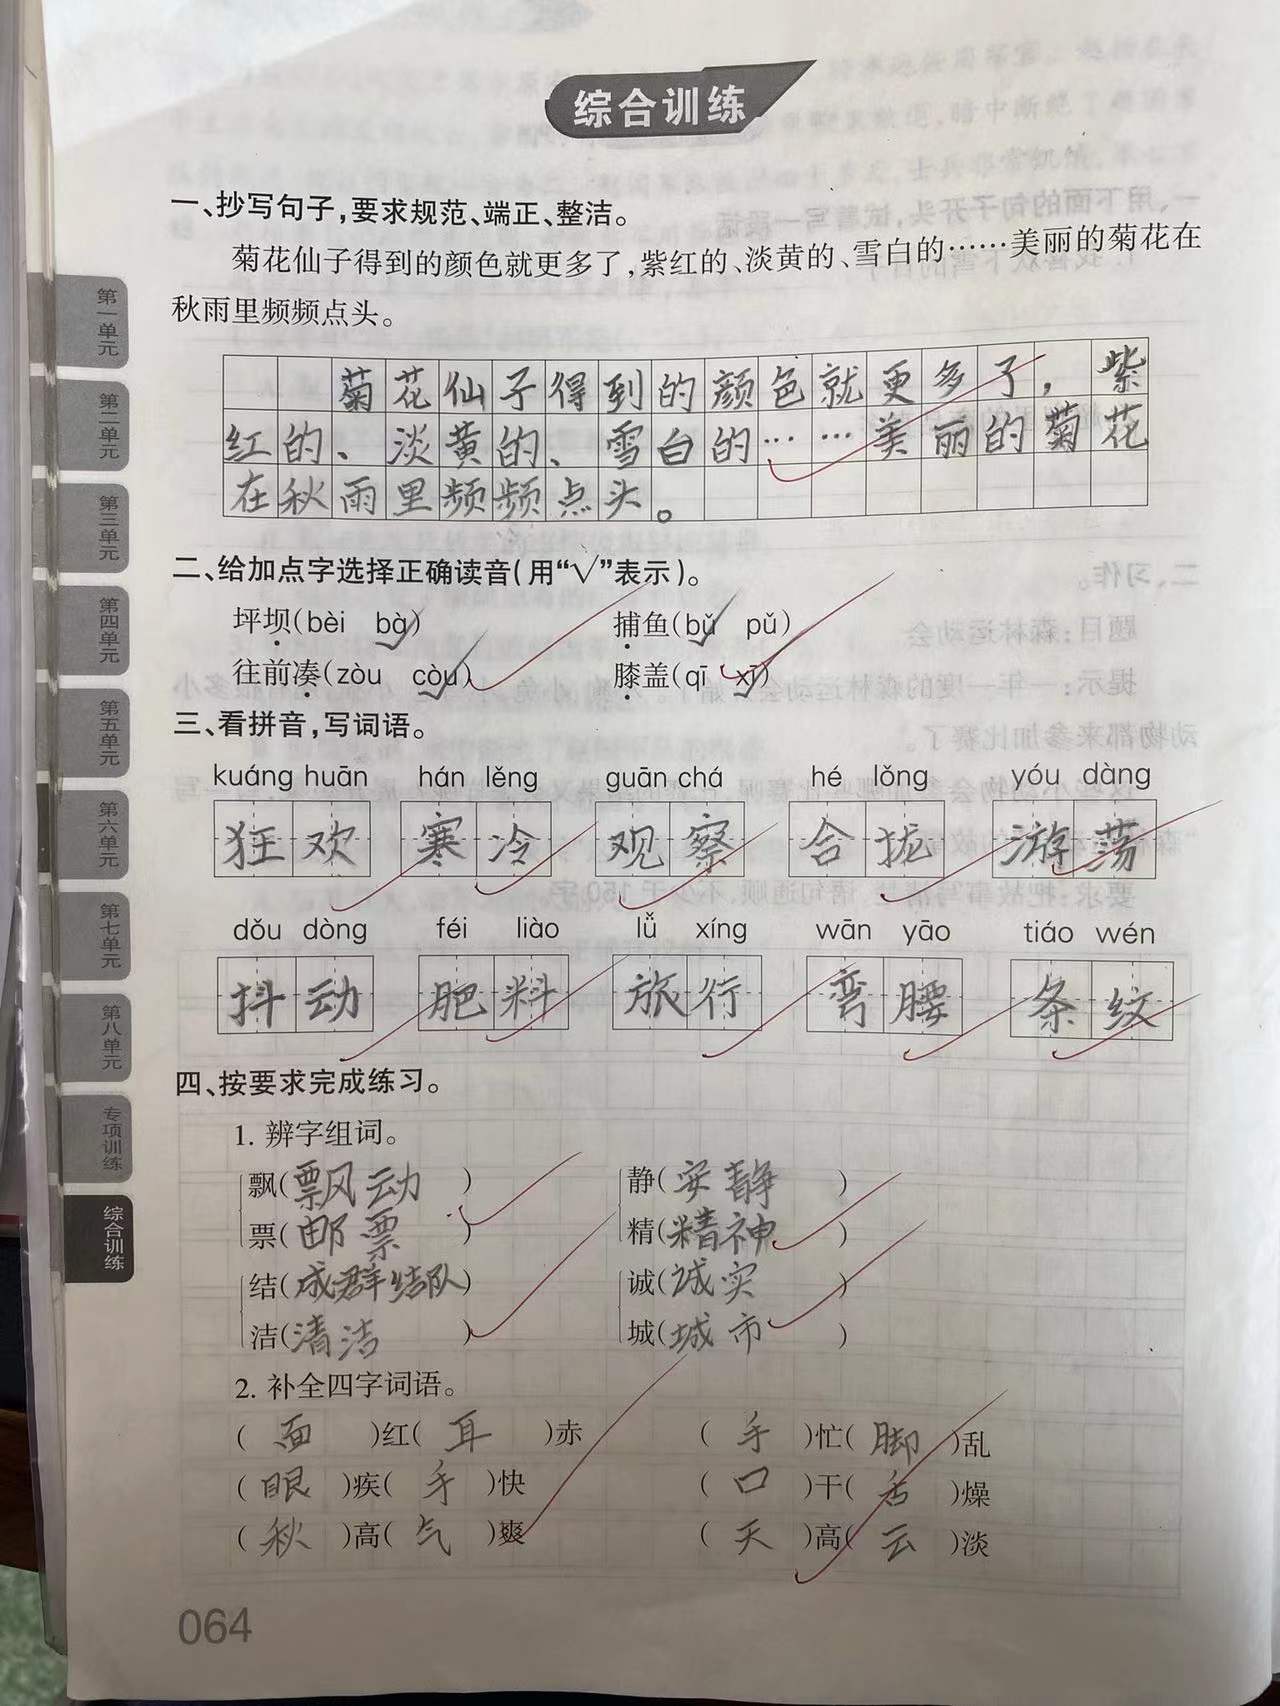 综合训练
一、抄写句子，要求规范、端正、整洁。
菊花仙子得到的颜色就更多了，紫红的、淡黄的、雪白的……美丽的菊花在
秋雨里频频点头。
菊花仙子得到的颜色就更多了，紫
红的、淡黄的、雪白的……美丽的菊花
在秋雨里频频点头。
二、给加点字选择正确读音（用“√”表示）。
坪坝（bèi bà√） 捕鱼（bǔ√ pǔ）
往前凑（zòu còu√） 膝盖（qī xī√）
三、看拼音，写词语。
kuáng huān hán lěng guān chá hé lǒng yóu dàng
狂欢 寒冷 观察 合拢 游荡
dǒu dòng féi liào lǚ xíng wān yāo tiáo wén
抖动 肥料 旅行 弯腰 条纹
四、按要求完成练习。
1. 辨字组词。
飘（飘动） 静（安静）
票（邮票） 精（精神）
结（成群结队） 诚（诚实）
洁（清洁） 城（城市）
2. 补全四字词语。
（面）红（耳）赤 （手）忙（脚）乱
（眼）疾（手）快 （口）干（舌）燥
（秋）高（气）爽 （天）高（云）淡
064
第一单元
第二单元
第三单元
第四单元
第五单元
第六单元
第七单元
第八单元
专项训练
综合训练